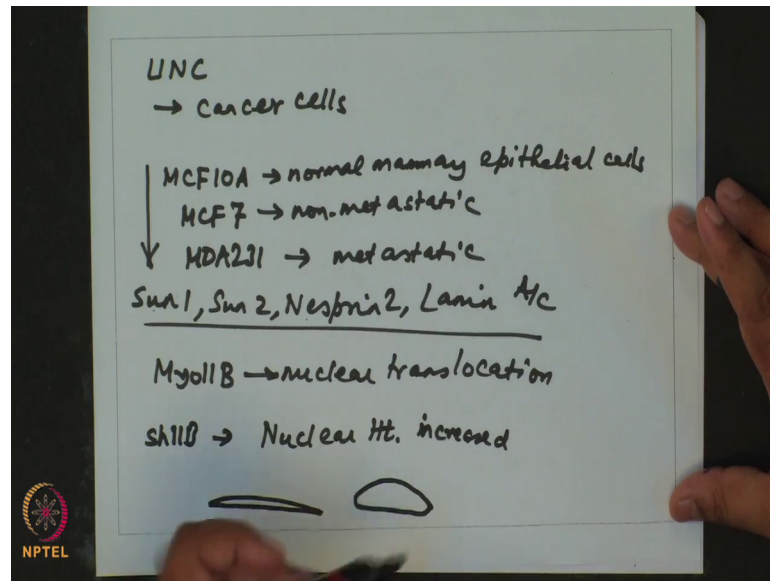 LINC
→ Cancer cells
MCF10A → normal mammay epithelial cells
MCF7 → non-metastatic
MDA231 → metastatic
Sun1, Sun2, Nesprin2, Lamin A/c
MyoIIB → nuclear translocation
shIIB → Nuclear Ht. increased
NPTEL